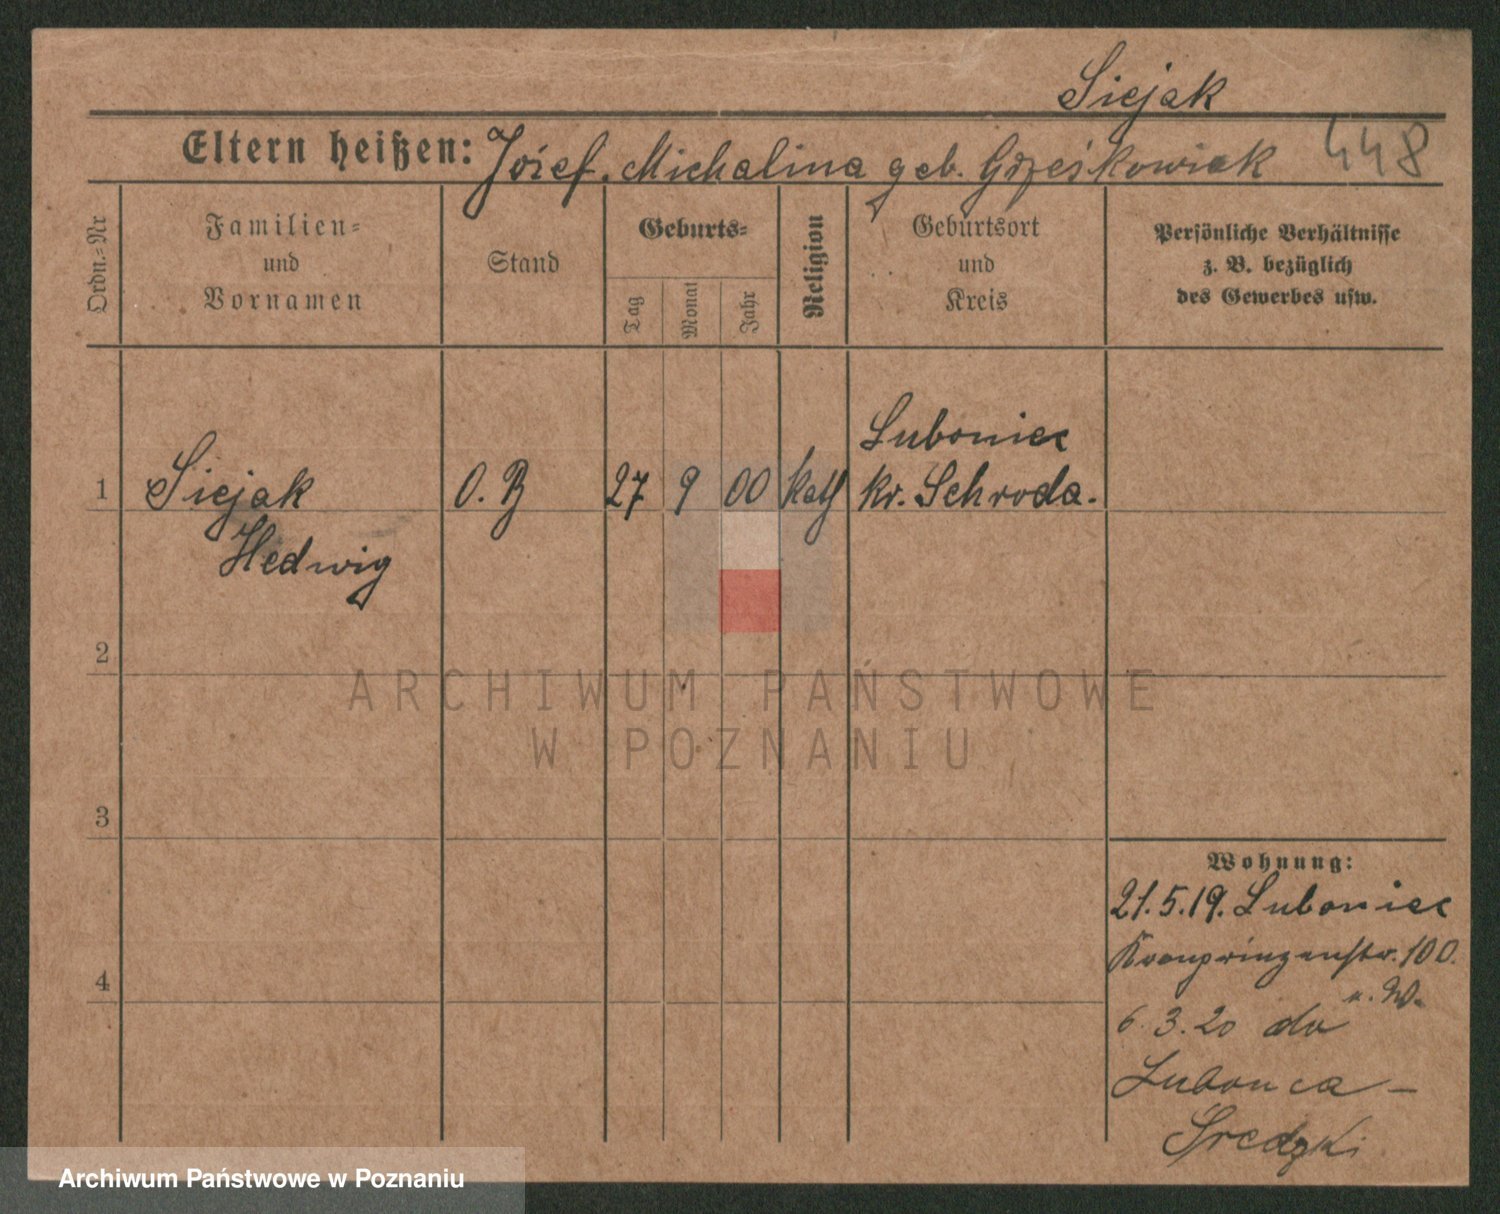 Siejak
Eltern heißen: Josef. Michalina geb. Grześkowiak 448
Ordn.-Nr
Familien-
und
Vornamen
Stand
Geburts-
Tag
Monat
Jahr
Religion
Geburtsort
und
Kreis
Persönliche Verhältnisse
z. B. bezüglich
des Gewerbes usw.
Luboniec
1 Siejak O. B 27 9 00 kath kr. Schroda.
Hedwig
2
ARCHIWUM PAŃSTWOWE
W POZNANIU
3
Wohnung:
21.5.19. Luboniec
Kronprinzenstr. 100.
4
6.3.20 do
Lubonca -
Sredzki
Archiwum Państwowe w Poznaniu